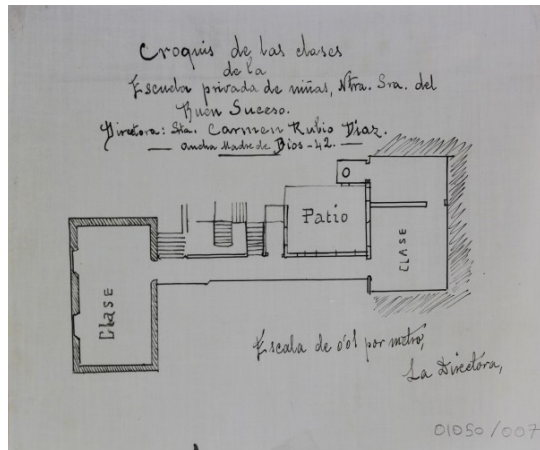 Croquis de las clases
de la
Escuela privada de niñas, Ntra. Sra. del
Buen Suceso.
Directora: Sta. Carmen Rubio Díaz.
— Ancha Madre de Dios - 42. —
Patio
CLASE
Clase
Escala de 0'01 por metro,
La Directora,
01050/007